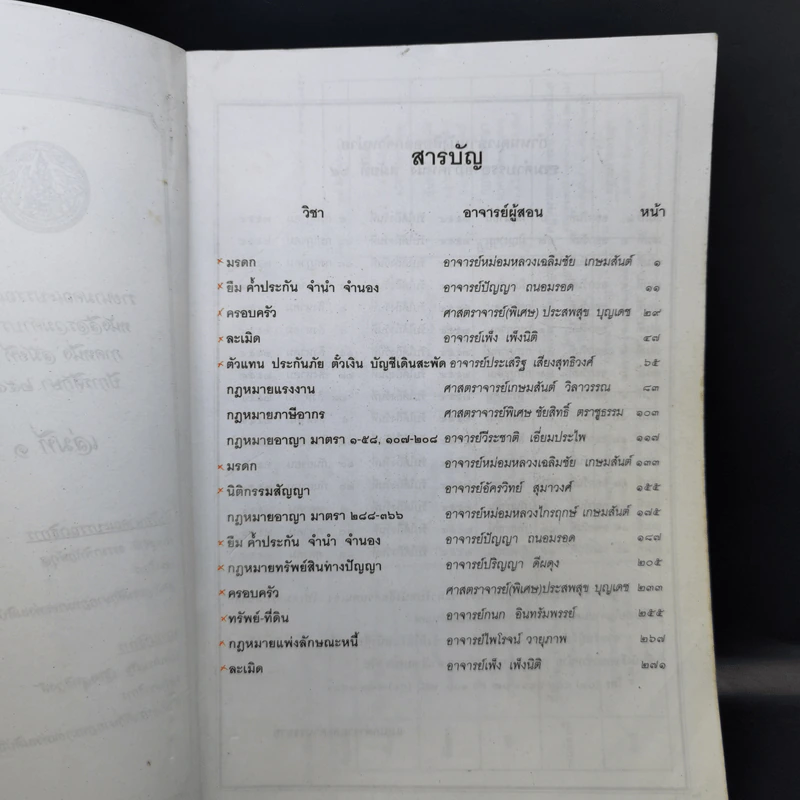 สารบัญ
วิชา อาจารย์ผู้สอน หน้า
มรดก อาจารย์หม่อมหลวงเฉลิมชัย เกษมสันต์ ๑
ยืม ค้ำประกัน จำนำ จำนอง อาจารย์ปัญญา ถนอมรอด ๑๑
ครอบครัว ศาสตราจารย์(พิเศษ) ประสพสุข บุญเดช ๒๙
ละเมิด อาจารย์เพ็ง เพ็งนิติ ๔๗
ตัวแทน ประกันภัย ตั๋วเงิน บัญชีเดินสะพัด อาจารย์ประเสริฐ เสียงสุทธิวงศ์ ๖๕
กฎหมายแรงงาน ศาสตราจารย์เกษมสันต์ วิลาวรรณ ๘๓
กฎหมายภาษีอากร ศาสตราจารย์พิเศษ ชัยสิทธิ์ ตราชูธรรม ๑๐๓
กฎหมายอาญา มาตรา ๑-๕๘, ๑๐๗-๒๐๘ อาจารย์วีระชาติ เอี่ยมประไพ ๑๑๗
มรดก อาจารย์หม่อมหลวงเฉลิมชัย เกษมสันต์ ๑๓๓
นิติกรรมสัญญา อาจารย์อัครวิทย์ สุมาวงศ์ ๑๕๕
กฎหมายอาญา มาตรา ๒๘๘-๓๖๖ อาจารย์หม่อมหลวงไกรฤกษ์ เกษมสันต์ ๑๗๕
ยืม ค้ำประกัน จำนำ จำนอง อาจารย์ปัญญา ถนอมรอด ๑๘๗
กฎหมายทรัพย์สินทางปัญญา อาจารย์ปริญญา ดีผดุง ๒๐๕
ครอบครัว ศาสตราจารย์(พิเศษ)ประสพสุข บุญเดช ๒๓๓
ทรัพย์-ที่ดิน อาจารย์กนก อินทรัมพรรย์ ๒๕๕
กฎหมายแพ่งลักษณะหนี้ อาจารย์ไพโรจน์ วายุภาพ ๒๖๗
ละเมิด อาจารย์เพ็ง เพ็งนิติ ๒๗๑